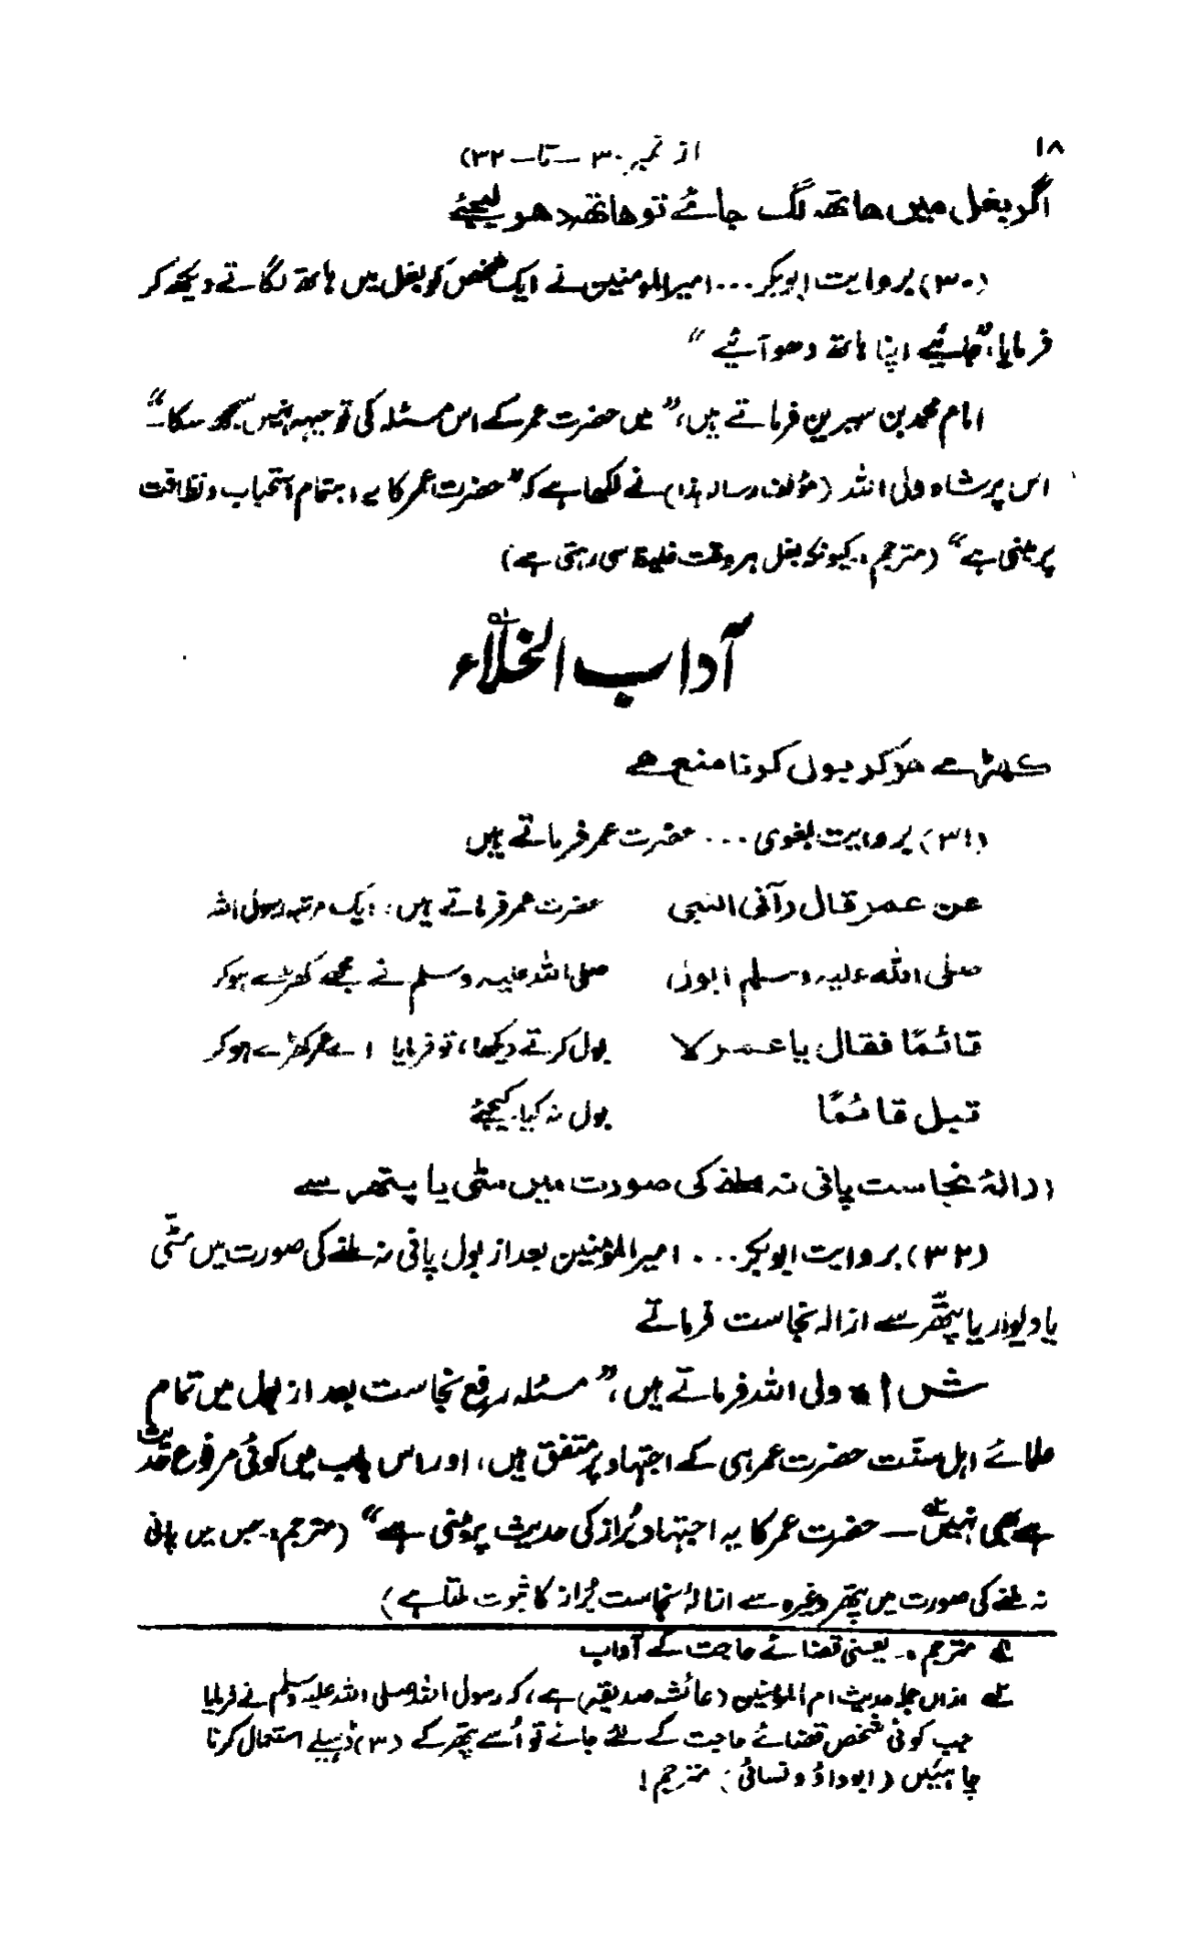 ۱۸
از نمبر ۳۰ – تا – ۳۲)
اگر بغل میں ہاتھ لگ جائے تو ہاتھ دھو لیجئے
(۳۰) بروایت ابوبکر ... امیرالمومنین نے ایک شخص کو بغل میں ہاتھ لگاتے دیکھ کر
فرمایا، "جائیے اپنا ہاتھ دھو آئیے"
امام محمد بن سیرین فرماتے ہیں، "میں حضرت عمر کے اس مسئلہ کی توجیہہ نہیں سمجھ سکا۔"
اس پر شاہ ولی اللہ (مؤلف رسالہ ہذا) نے لکھا ہے کہ "حضرت عمر کا یہ اہتمام استحباب و نظافت
پر مبنی ہے" (مترجم: کیونکہ بغل ہر وقت غلیظ سی رہتی ہے)
آداب الخلاء ؂۱
کھڑے ہو کر بول کرنا منع ہے
(۳۱) بروایت بغوی ... حضرت عمر فرماتے ہیں
عن عمر قال رآنی النبی حضرت عمر فرماتے ہیں: ایک مرتبہ رسول اللہ
صلی اللہ علیہ وسلم ابول صلی اللہ علیہ وسلم نے مجھے کھڑے ہو کر
قائمًا فقال یا عمر لا بول کرتے دیکھا، تو فرمایا اے عمر کھڑے ہو کر
تبل قائمًا بول نہ کیا کیجئے
ازالۂ نجاست پانی نہ ملنے کی صورت میں مٹی یا پتھر سے
(۳۲) بروایت ابوبکر ... امیر المؤمنین بعد از بول پانی نہ ملنے کی صورت میں مٹّی
یا دیوار یا پتھّر سے ازالہ نجاست فرماتے
ش ا ہ ولی اللہ فرماتے ہیں، "مسئلہ رفع نجاست بعد از بول میں تمام
علمائے اہل سنّت حضرت عمر ہی کے اجتہاد پر متفق ہیں، اور اس باب میں کوئی مرفوع حدیث
ہے بھی نہیں ؂۲ – حضرت عمر کا یہ اجتہاد بُراز کی حدیث پر مبنی ہے" (مترجم: جس میں پانی
نہ ملنے کی صورت میں پتھر وغیرہ سے ازالۂ نجاست بُراز کا ثبوت ملتا ہے)
؂۱ مترجم :۔ یعنی قضائے حاجت کے آداب
؂۲ ازاں جملہ حدیث ام المؤمنین (عائشہ صدیقہ) ہے، کہ رسول اللہ صلی اللہ علیہ وسلم نے فرمایا
جب کوئی شخص قضائے حاجت کے لئے جائے تو اُسے پتھر کے (۳) ڈھیلے استعمال کرنا
چاہئیں (ابوداؤد و نسائی): مترجم!